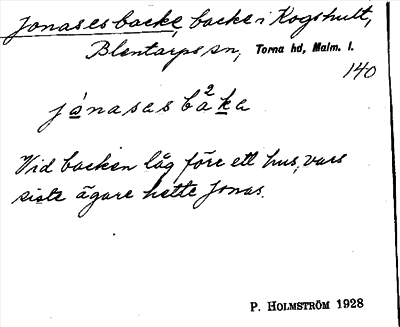 Jonasesbacke, backe i Kogshult,
Blentarps sn, Torna hd, Malm. l.
140
jònasas ba²ka
Vid backen låg före ett hus, vars
siste ägare hette Jonas.
P. HOLMSTRÖM 1928